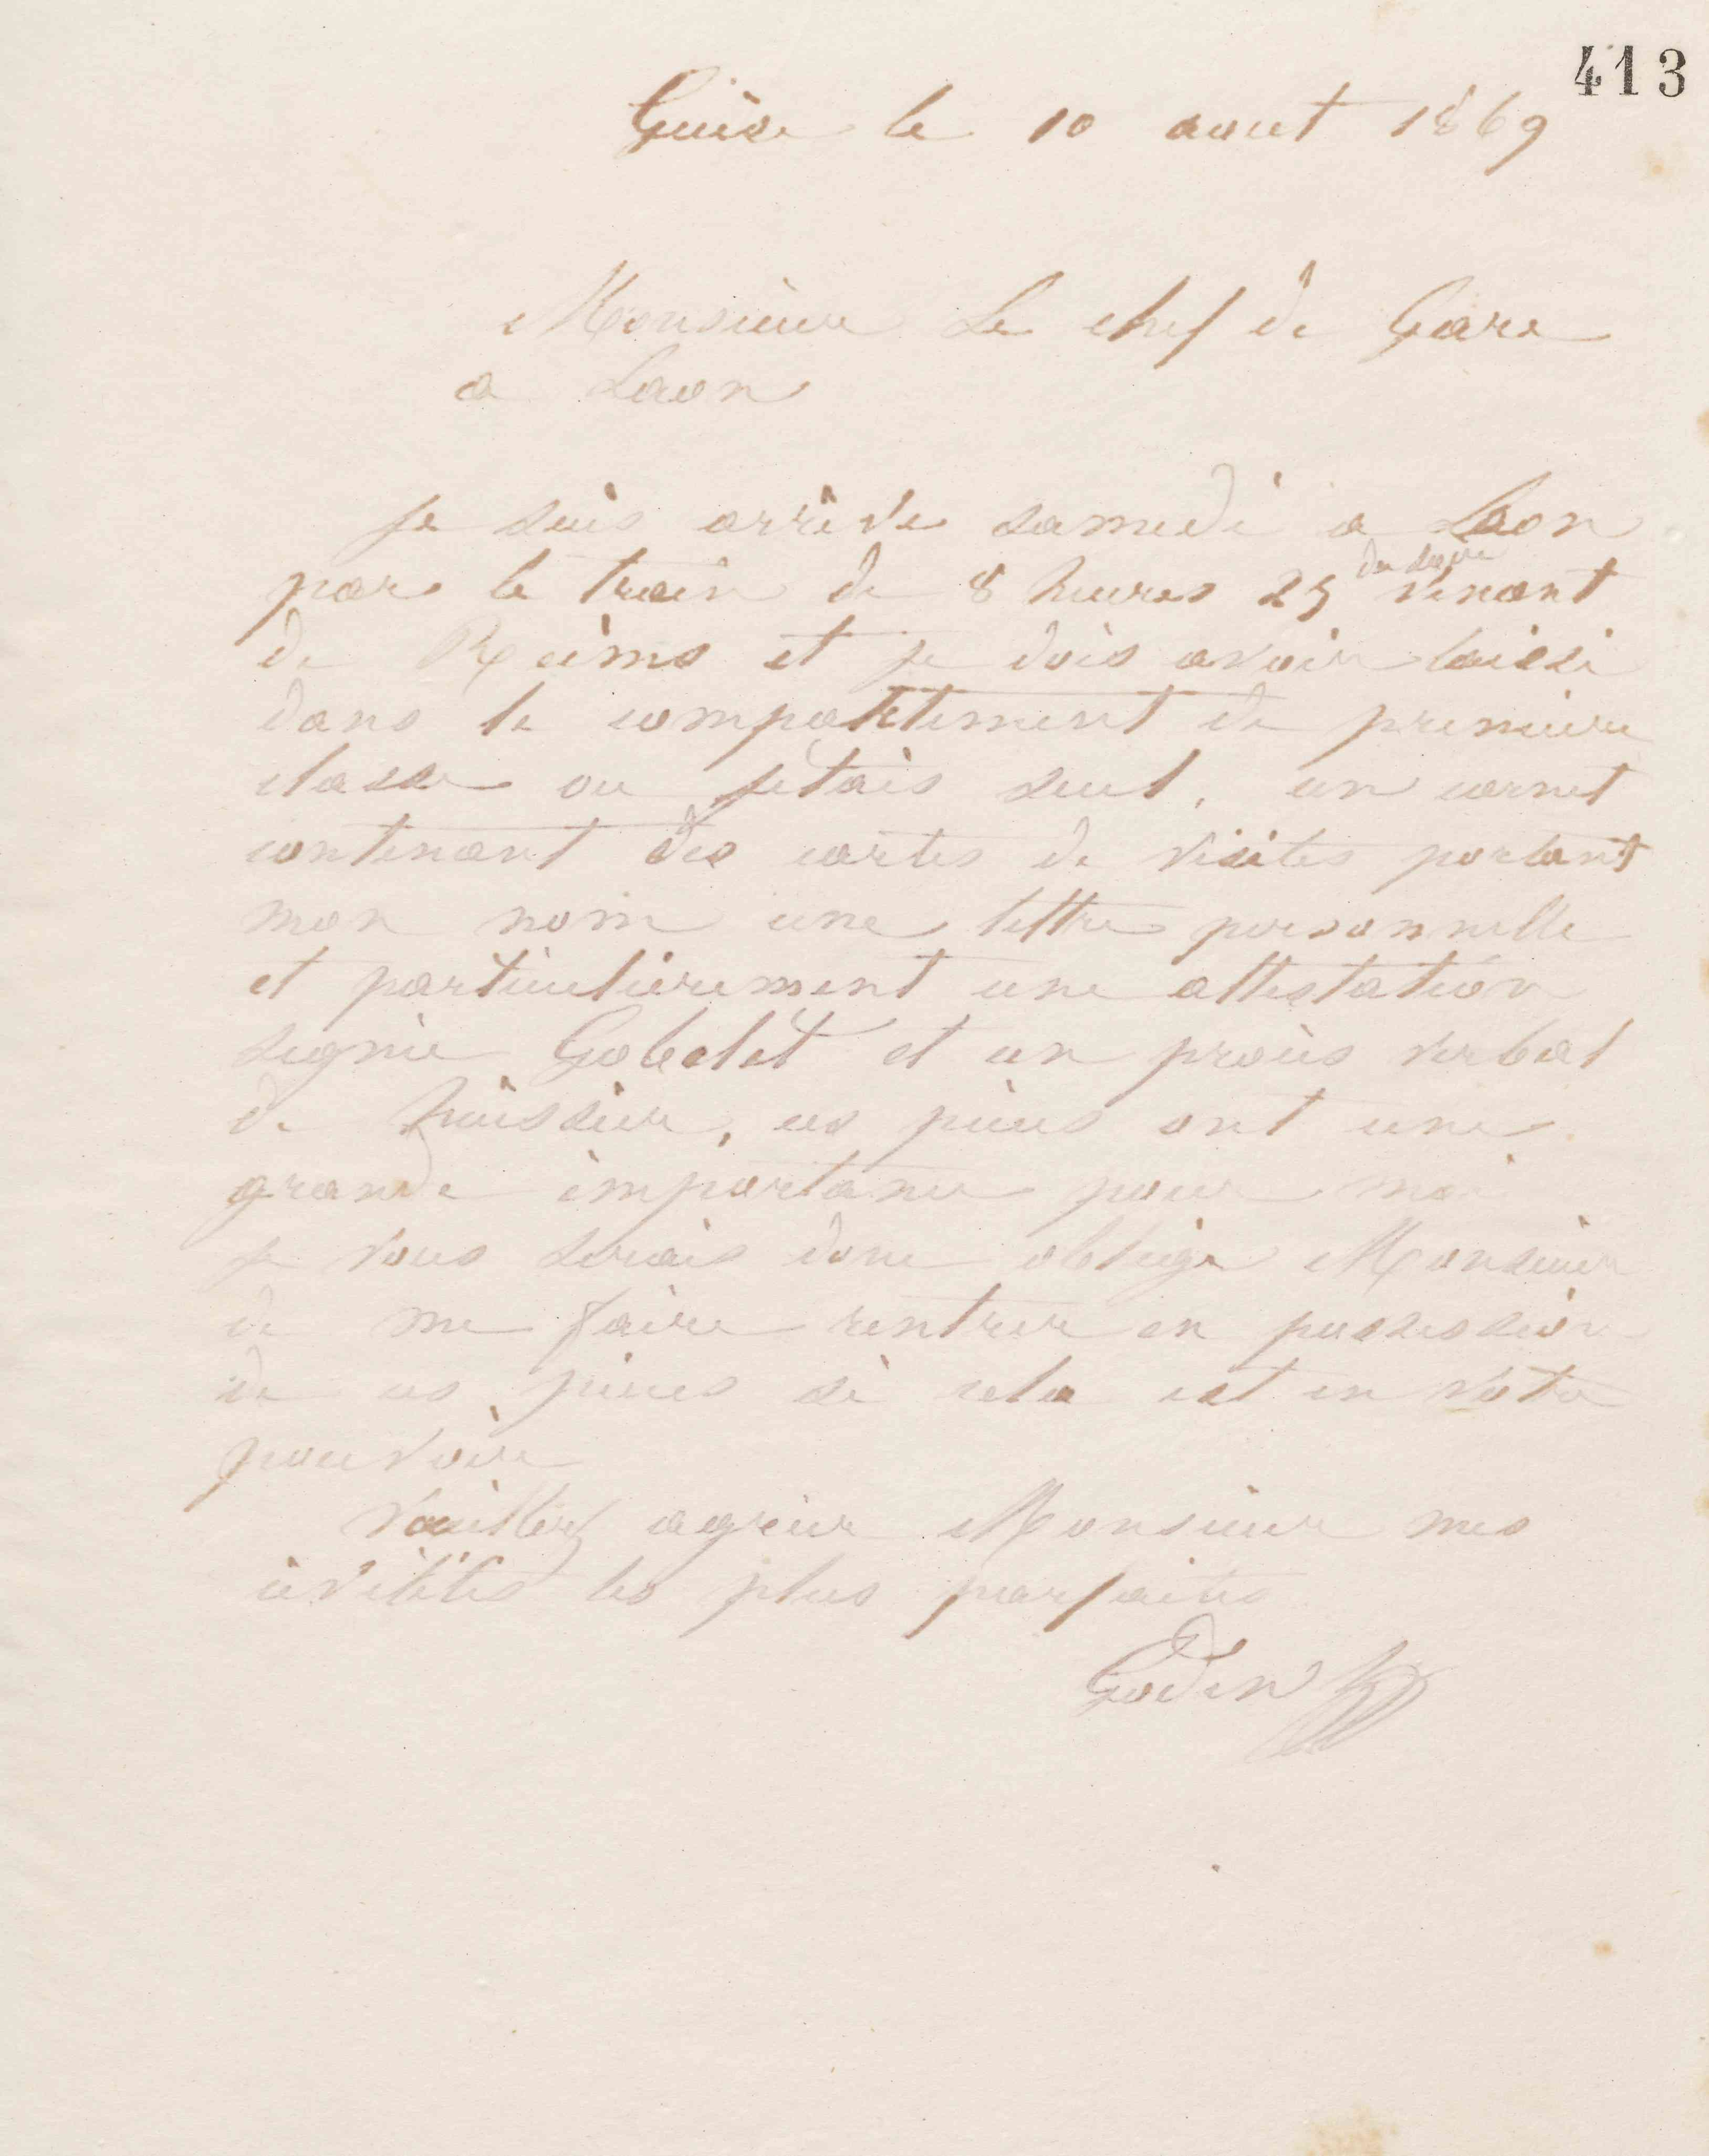 413
Guise le 10 aout 1869
Monsieur Le chef de Gare
a Laon
Je suis arrivé samedi a Laon
par le train de 8 heures 25 du soir venant
de Reims et je dois avoir laissé
dans le compartiment de premiere
classe ou j'étais seul, un carnet
contenant des cartes de visites portant
mon nom une lettre personnelle
et particulièrement une attestation
signée Gobelet et un procès verbal
de huissier, ces pièces ont une
grande importance pour moi
je vous serais donc obligé Monsieur
de me faire rentrer en possession
de ces pièces si cela est en votre
pouvoir
Veuillez agréer Monsieur mes
civilités les plus parfaites
Godin